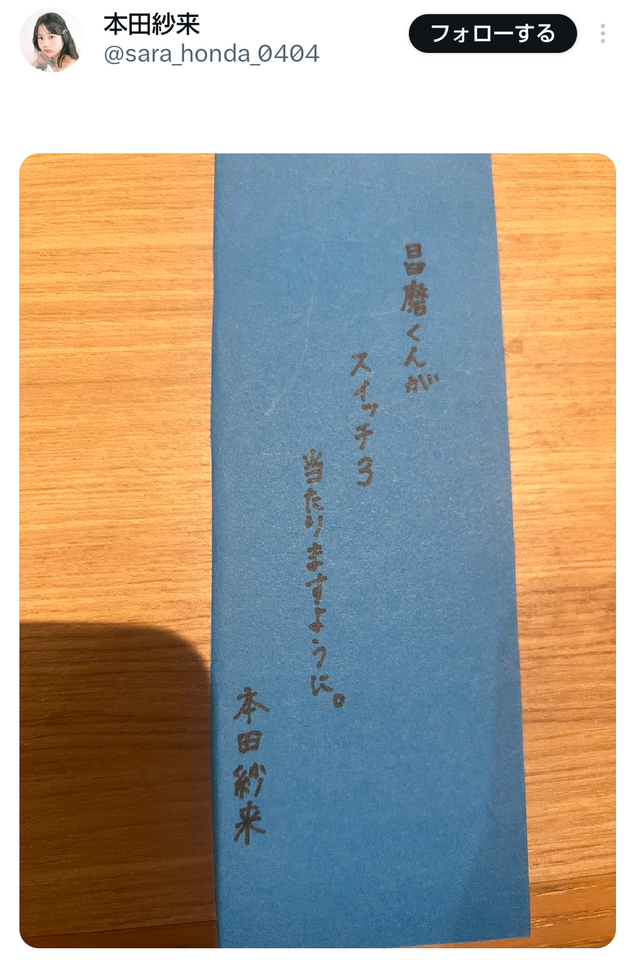 本田紗来
@sara_honda_0404
フォローする
昌磨くんが
スイッチ3
当たりますように。
本田紗来